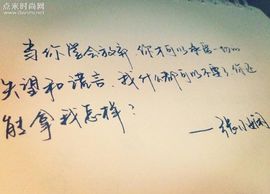 点米时尚网
当你学会放弃 你才可以承受一切的
失望和谎言.我什么都可以不要了,你还
能拿我怎样？
——张小娴